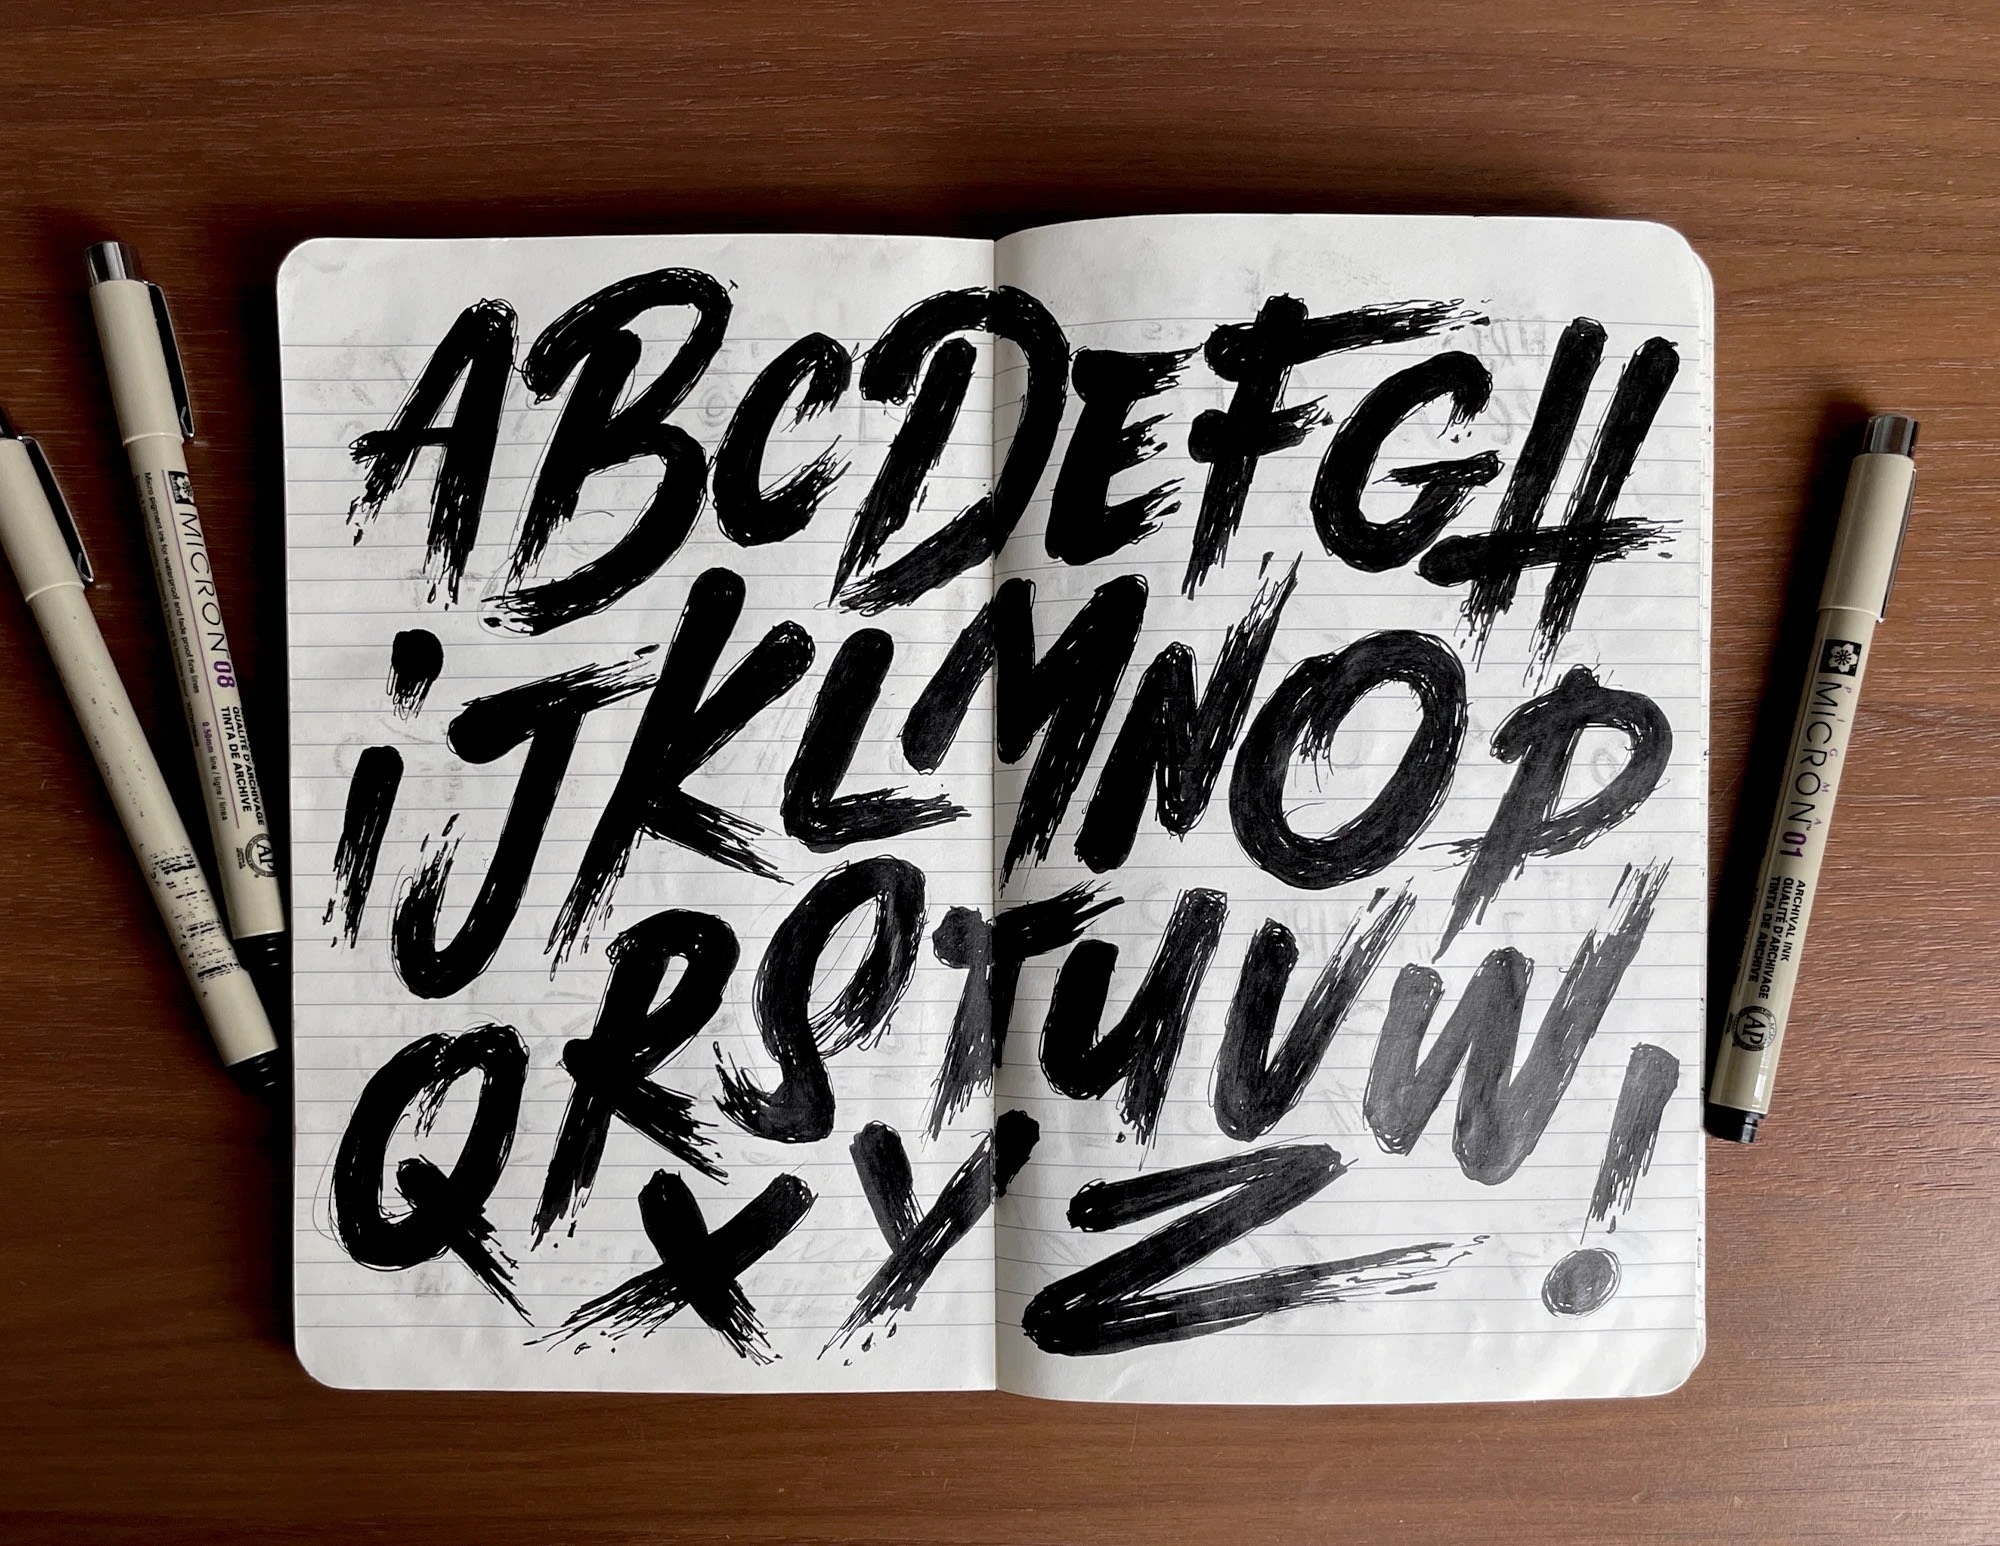 ABCDEFGH
iJKLMNOP
QRSTUVW!
XYZ
MICRON 08
Micro pigment ink for waterproof and fade proof fine lines
0.50mm line / ligne / línea
QUALITÉ D'ARCHIVAGE
TINTA DE ARCHIVE
AP
PIGMA
MICRON 01
ARCHIVAL INK
QUALITÉ D'ARCHIVAGE
TINTA DE ARCHIVE
AP